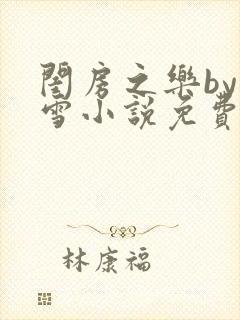 閨房之樂by
雪小說免費
林康福